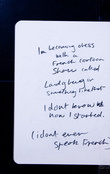 I'm learning chess
with a
French cartoon
Show called
Ladybug or
something like that
I dont know
how I started.
(i dont even
speak French)